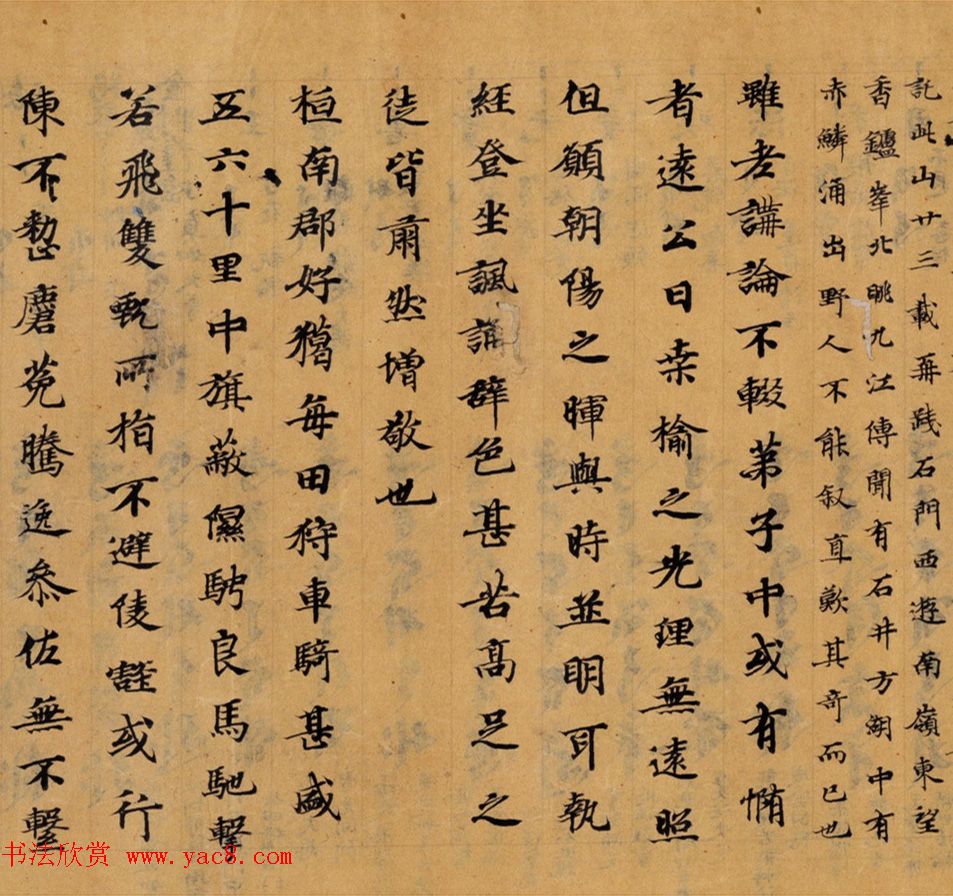 託此山廿三載再踐石門西遊南嶺東望
香鑪峯北眺九江傳聞有石井方湖中有
赤鱗涌出野人不能叙直歎其奇而已也
雖老講論不輟第子中或有惰
者遠公曰桒榆之光理無遠照
但願朝陽之暉與時並明耳執
經登坐諷誦辭色甚苦高足之
徒皆肅然增敬也
桓南郡好獦每田狩車騎甚盛
五六十里中旗蔽隰騁良馬馳擊
若飛雙甄所指不避陵壑或行
陳不整麏菟騰逸叅佐無不繫
书法欣赏 www.yac8.com